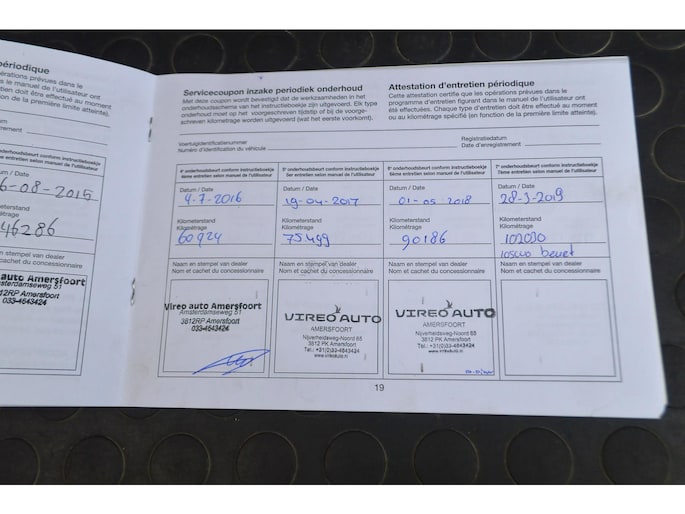 périodique
opérations prévues dans le
manuel de l'utilisateur ont
d'entretien doit être effectué au moment
de la première limite atteinte).
um /
enregistrement
onderhoudsbeurt conform instructieboekje
entretien selon manuel de l'utilisateur
tum / Date
6-08-2015
lometerstand
lométrage
46286
am en stempel van dealer
m et cachet du concessionnaire
auto Amersfoort
msterdamseweg 51
3812RP Amersfoort
033-4643424
Servicecoupon inzake periodiek onderhoud
Met deze coupon wordt bevestigd dat de werkzaamheden in het
onderhoudsschema van het instructieboekje zijn uitgevoerd. Elk type
onderhoud moet op het voorgeschreven tijdstip of bij de voorge-
schreven kilometrage worden uitgevoerd (wat het eerste voorkomt).
Attestation d'entretien périodique
Cette attestation certifie que les opérations prévues dans le
programme d'entretien figurant dans le manuel de l'utilisateur ont
été effectuées. Chaque type d'entretien doit être effectué au moment
ou au kilométrage spécifié (en fonction de la première limite atteinte).
Voertuigidentificatienummer
numéro d'identification du véhicule
Registratiedatum
Date d'enregistrement
4e onderhoudsbeurt conform instructieboekje
4ème entretien selon manuel de l'utilisateur
Datum / Date
4-7-2016
Kilometerstand
Kilométrage
60924
Naam en stempel van dealer
Nom et cachet du concessionnaire
Vireo auto Amersfoort
Amsterdamseweg 51
3812RP Amersfoort
033-4643424
5e onderhoudsbeurt conform instructieboekje
5er entretien selon manuel de l'utilisateur
Datum / Date
19-04-2017
Kilometerstand
Kilométrage
75499
Naam en stempel van dealer
Nom et cachet du concessionnaire
VIREO AUTO
AMERSFOORT
Nijverheidsweg-Noord 65
3812 PK Amersfoort
Tel.: +31(0)33-4643424
6e onderhoudsbeurt conform instructieboekje
6ème entretien selon manuel de l'utilisateur
Datum / Date
01-05-2018
Kilometerstand
Kilométrage
90186
Naam en stempel van dealer
Nom et cachet du concessionnaire
VIREO AUTO
AMERSFOORT
Nijverheidsweg-Noord 65
3812 PK Amersfoort
Tel.: +31(0)33-4643424
7e onderhoudsbeurt conform instructieboekje
7ème entretien selon manuel de l'utilisateur
Datum / Date
28-3-2019
Kilometerstand
Kilométrage
102030
beurt
Naam en stempel van dealer
Nom et cachet du concessionnaire
19